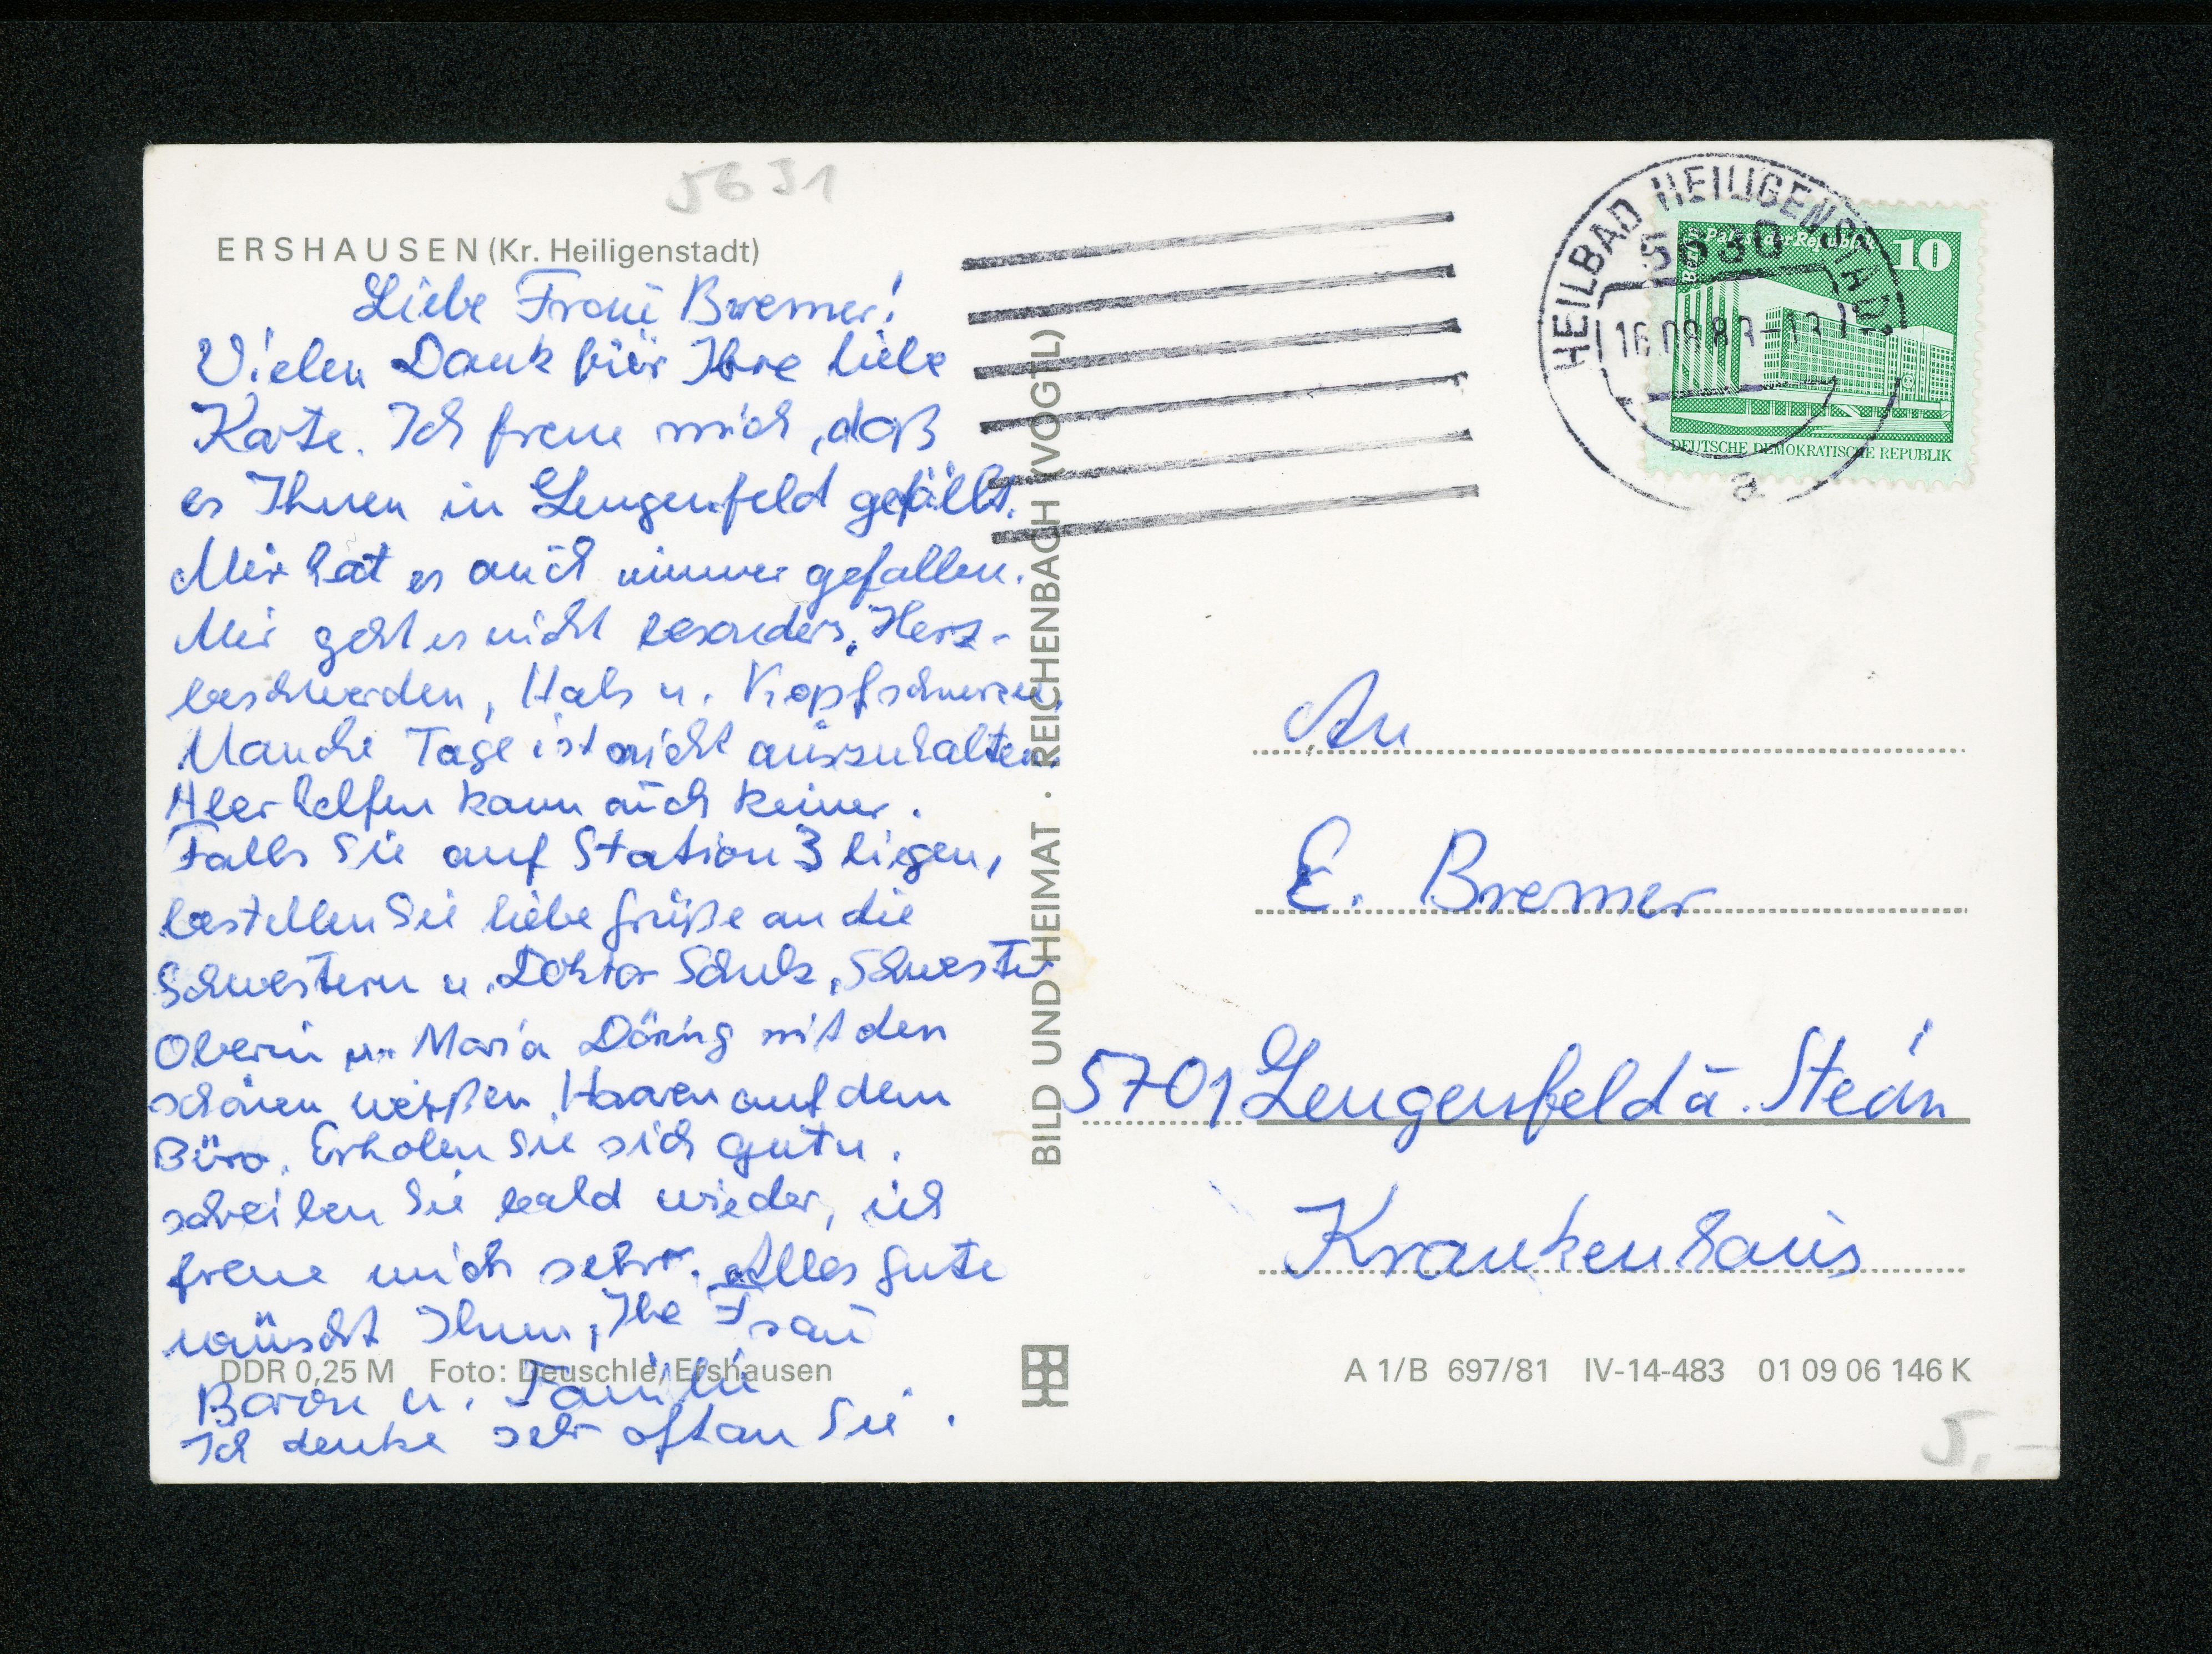 5631
ERSHAUSEN (Kr. Heiligenstadt)
Liebe Frau Bremer!
Vielen Dank für Ihre liebe
Karte. Ich freue mich, daß
es Ihnen in Lengenfeld gefällt.
Mir hat es auch immer gefallen.
Mir geht es nicht besonders, Herz-
beschwerden, Hals u. Kopfschmerzen.
Manche Tage ist nicht auszuhalten.
Aber helfen kann auch keiner.
Falls Sie auf Station 3 liegen,
bestellen Sie liebe Grüße an die
Schwestern u. Doktor Schulz, Schwester
Oberin u. Maria Döring mit den
schönen weißen Haaren auf dem
Büro. Erholen Sie sich gut u.
schreiben Sie bald wieder, ich
freue mich sehr. Alles Gute
wünscht Ihnen, Ihre Frau
DDR 0,25 M Foto: Deuschle, Ershausen
u. Familie
Ich denke sehr oft an Sie.
BILD UND HEIMAT · REICHENBACH (VOGTL)
HEILBAD HEILIGENSTADT
5630
a
Berlin Palast der Republik
10
DEUTSCHE DEMOKRATISCHE REPUBLIK
An
E. Bremer
5701 Lengenfeld u. Stein
Krankenhaus
A 1/B 697/81 IV-14-483 01 09 06 146 K
5,-